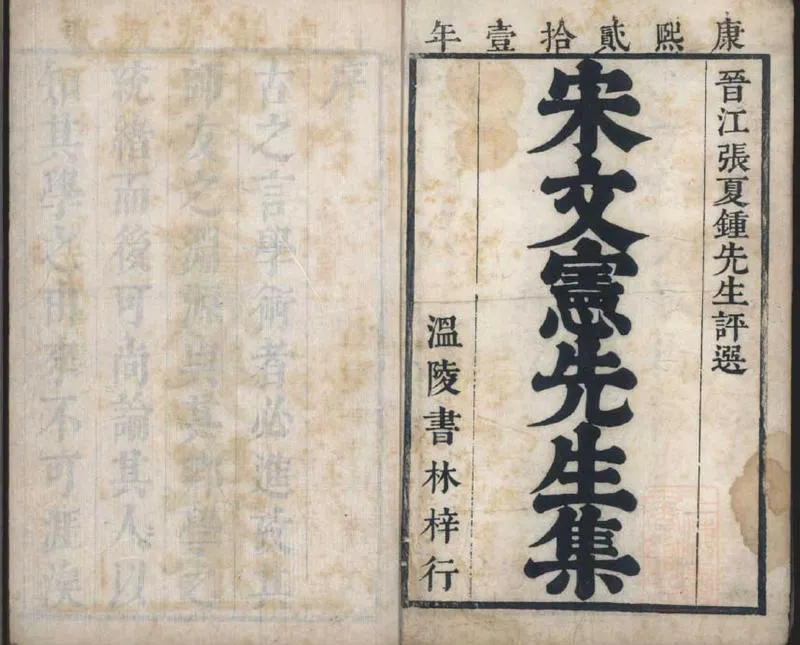 康熙貳拾壹年
晉江張夏鍾先生評選
宋文憲先生集
溫陵書林梓行
序
古之言學術者必進攷其
師友之淵源與其學之
統緒而後可尚論其人以
知其學之由不可涯涘